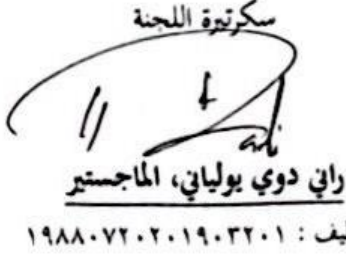 سكرتيرة اللجنة
راني دوي يولياني، الماجستير
يف : ١٩٨٨٠٧٢٠٢٠١٩٠٣٢٠١